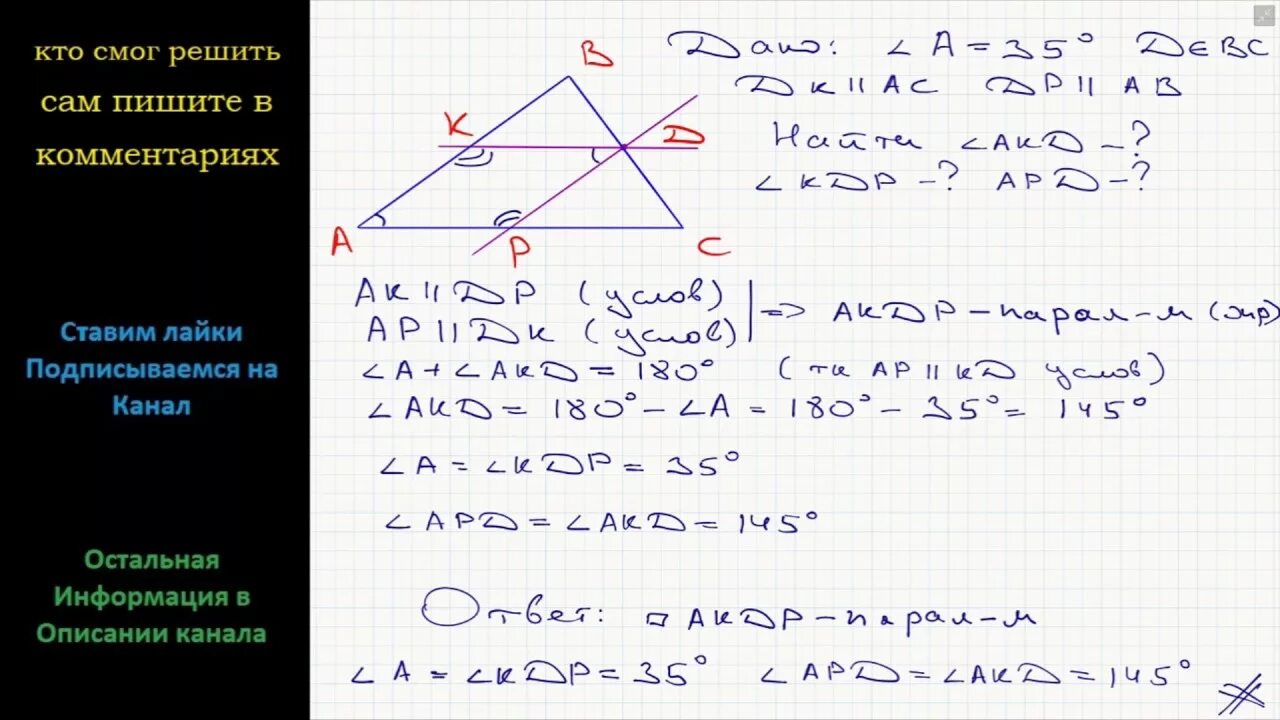 кто смог решить
сам пишите в
комментариях
Ставим лайки
Подписываемся на
Канал
Остальная
Информация в
Описании канала
Дано: ∠A = 35° D∈BC
DK || AC DP || AB
Найти ∠AKD – ?
∠KDP – ? APD – ?
B
K
D
A
P
C
AK || DP (услов)
AP || DK (услов)
=> AKDP – парал-м (опр)
∠A + ∠AKD = 180° (тк AP || KD услов)
∠AKD = 180° – ∠A = 180° – 35° = 145°
∠A = ∠KDP = 35°
∠APD = ∠AKD = 145°
Ответ: ▱ AKDP – парал-м
∠A = ∠KDP = 35° ∠APD = ∠AKD = 145°